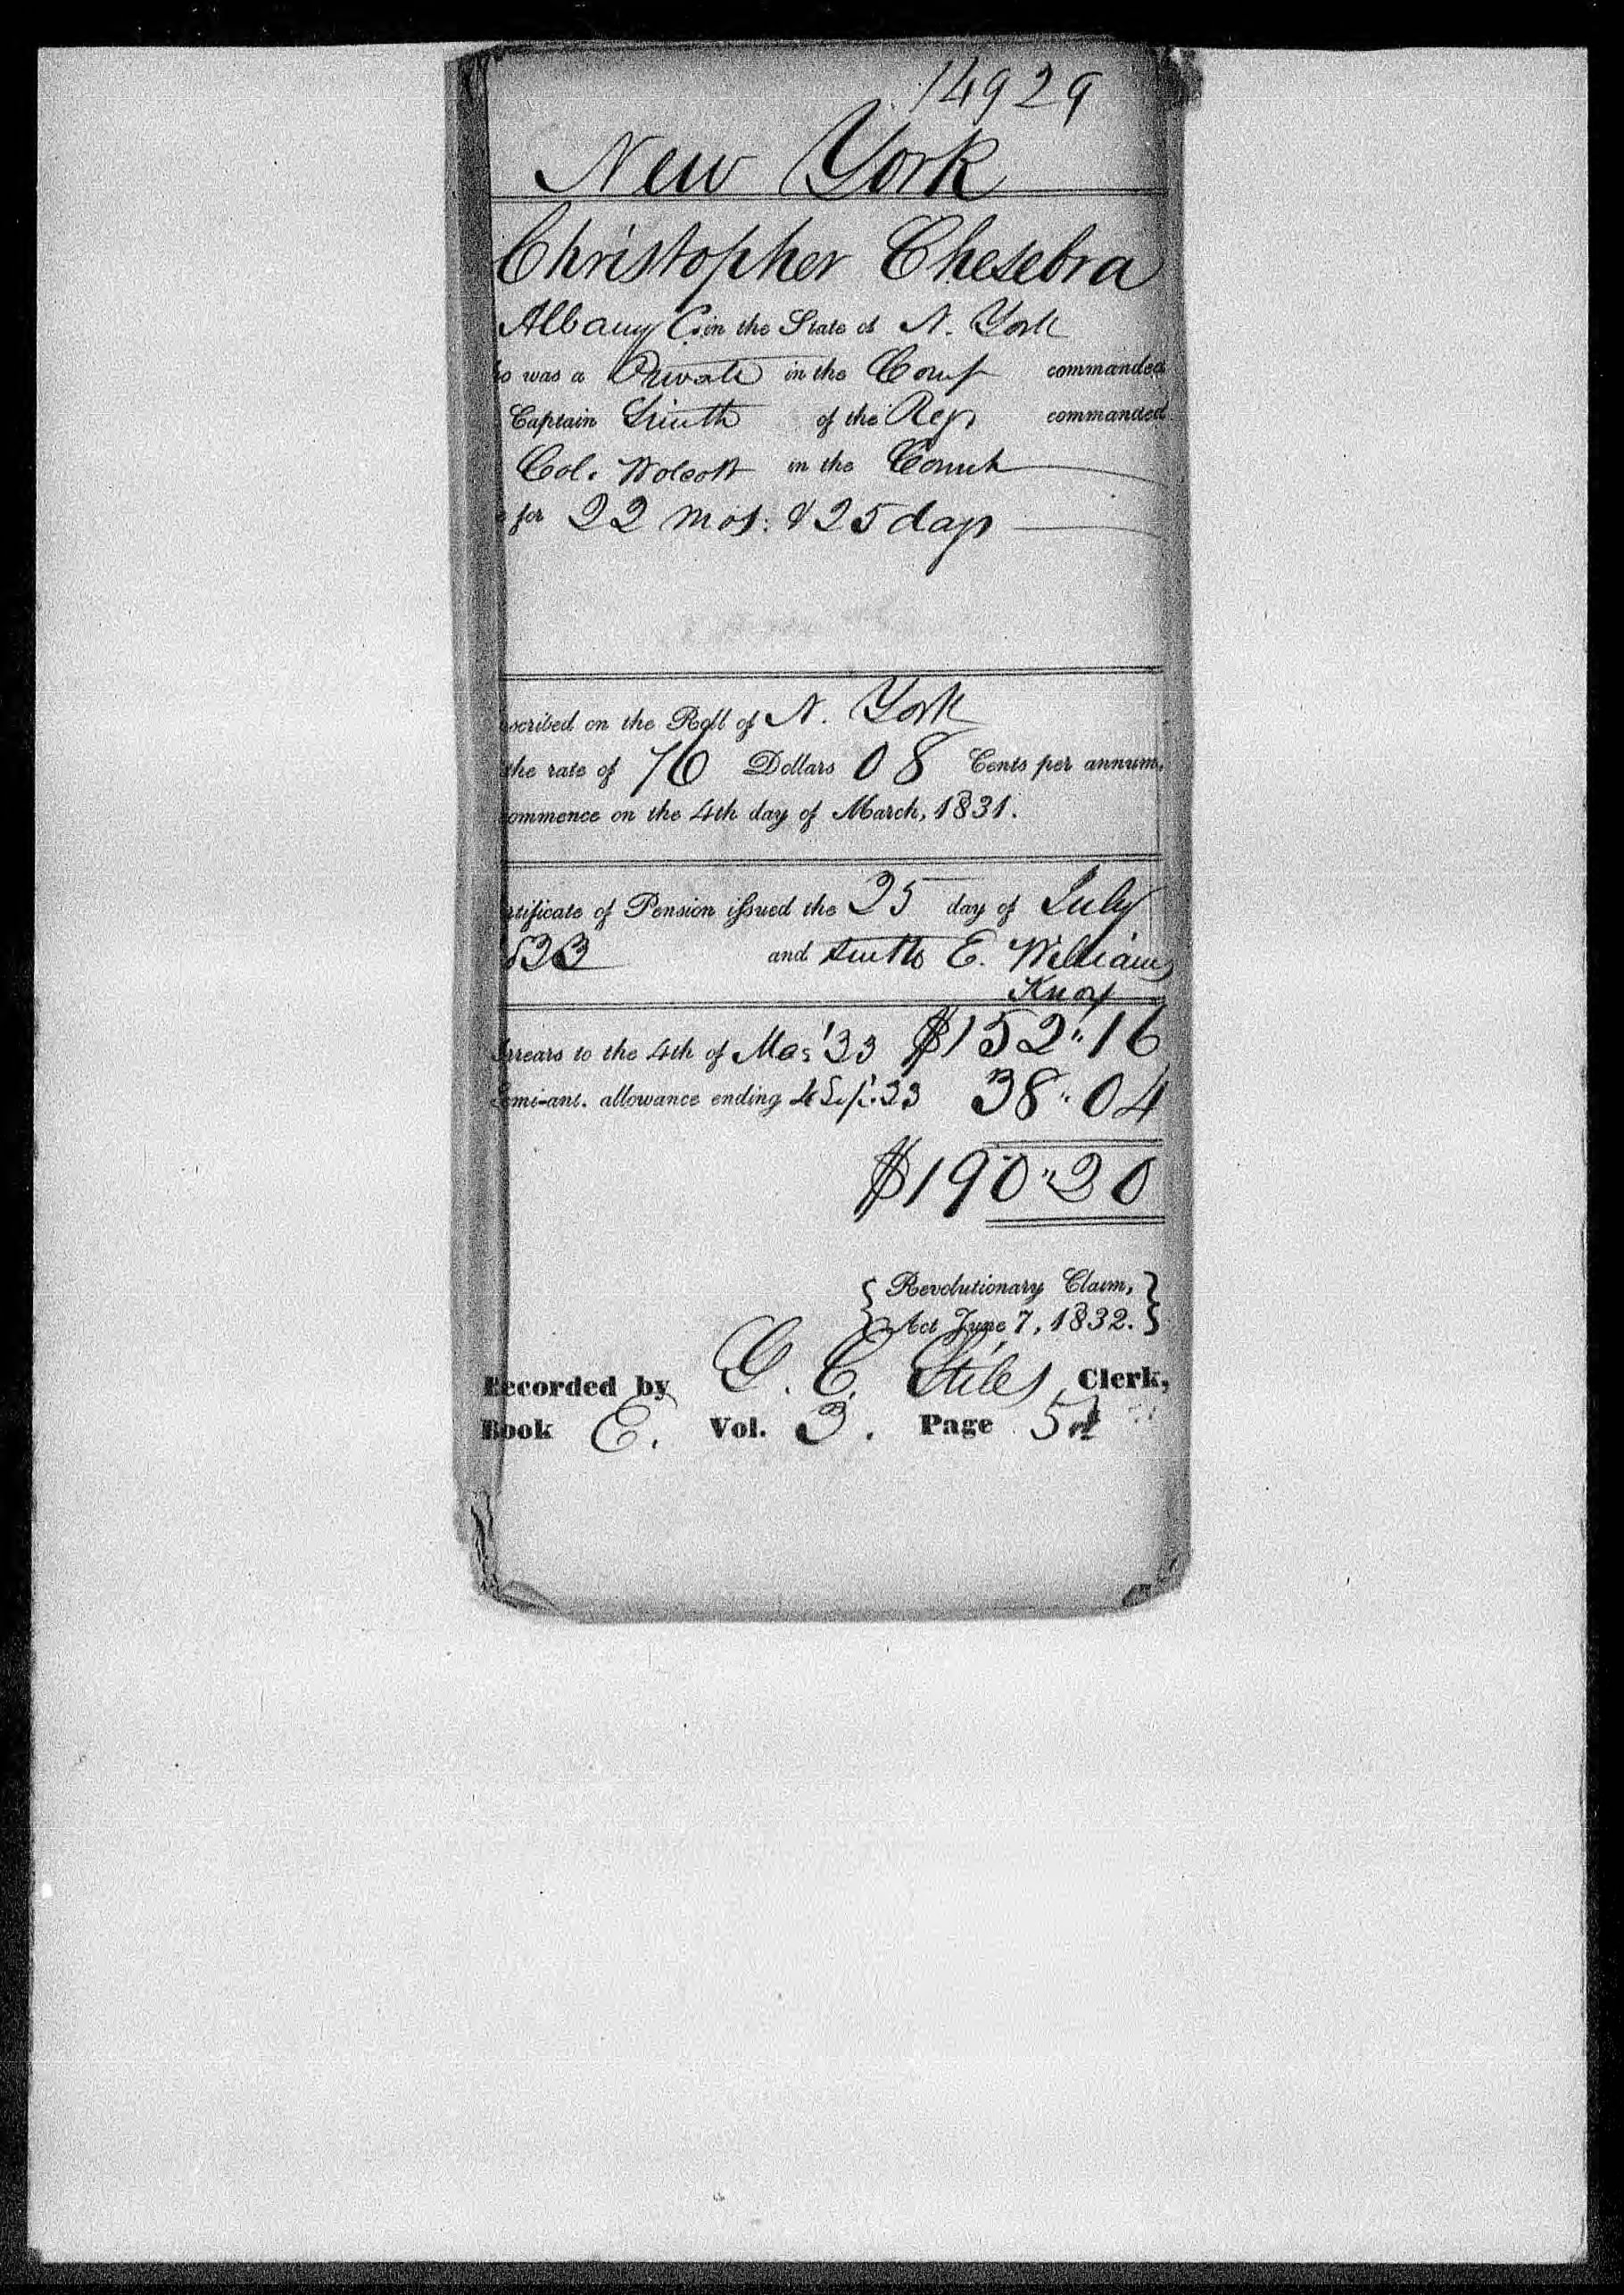 14929
New York
Christopher Chesebra
Albany C. in the State of N. York
ho was a Private in the Comp commanded
Captain Smith of the Reg commanded
Col. Wolcott in the Connt
for 22 mos: & 25 days
scribed on the Roll of N. York
the rate of 76 Dollars 08 Cents per annum,
ommence on the 4th day of March, 1831.
rtificate of Pension issued the 25 day of July
833 and E. Williams
Knox
rrears to the 4th of Mar '33 $152"16
emi-anl. allowance ending 4 Sept. 33 38"04
$190"20
{ Revolutionary Claim, }
{ Act June 7, 1832. }
Recorded by Stiles, Clerk,
Book E. Vol. 3. Page